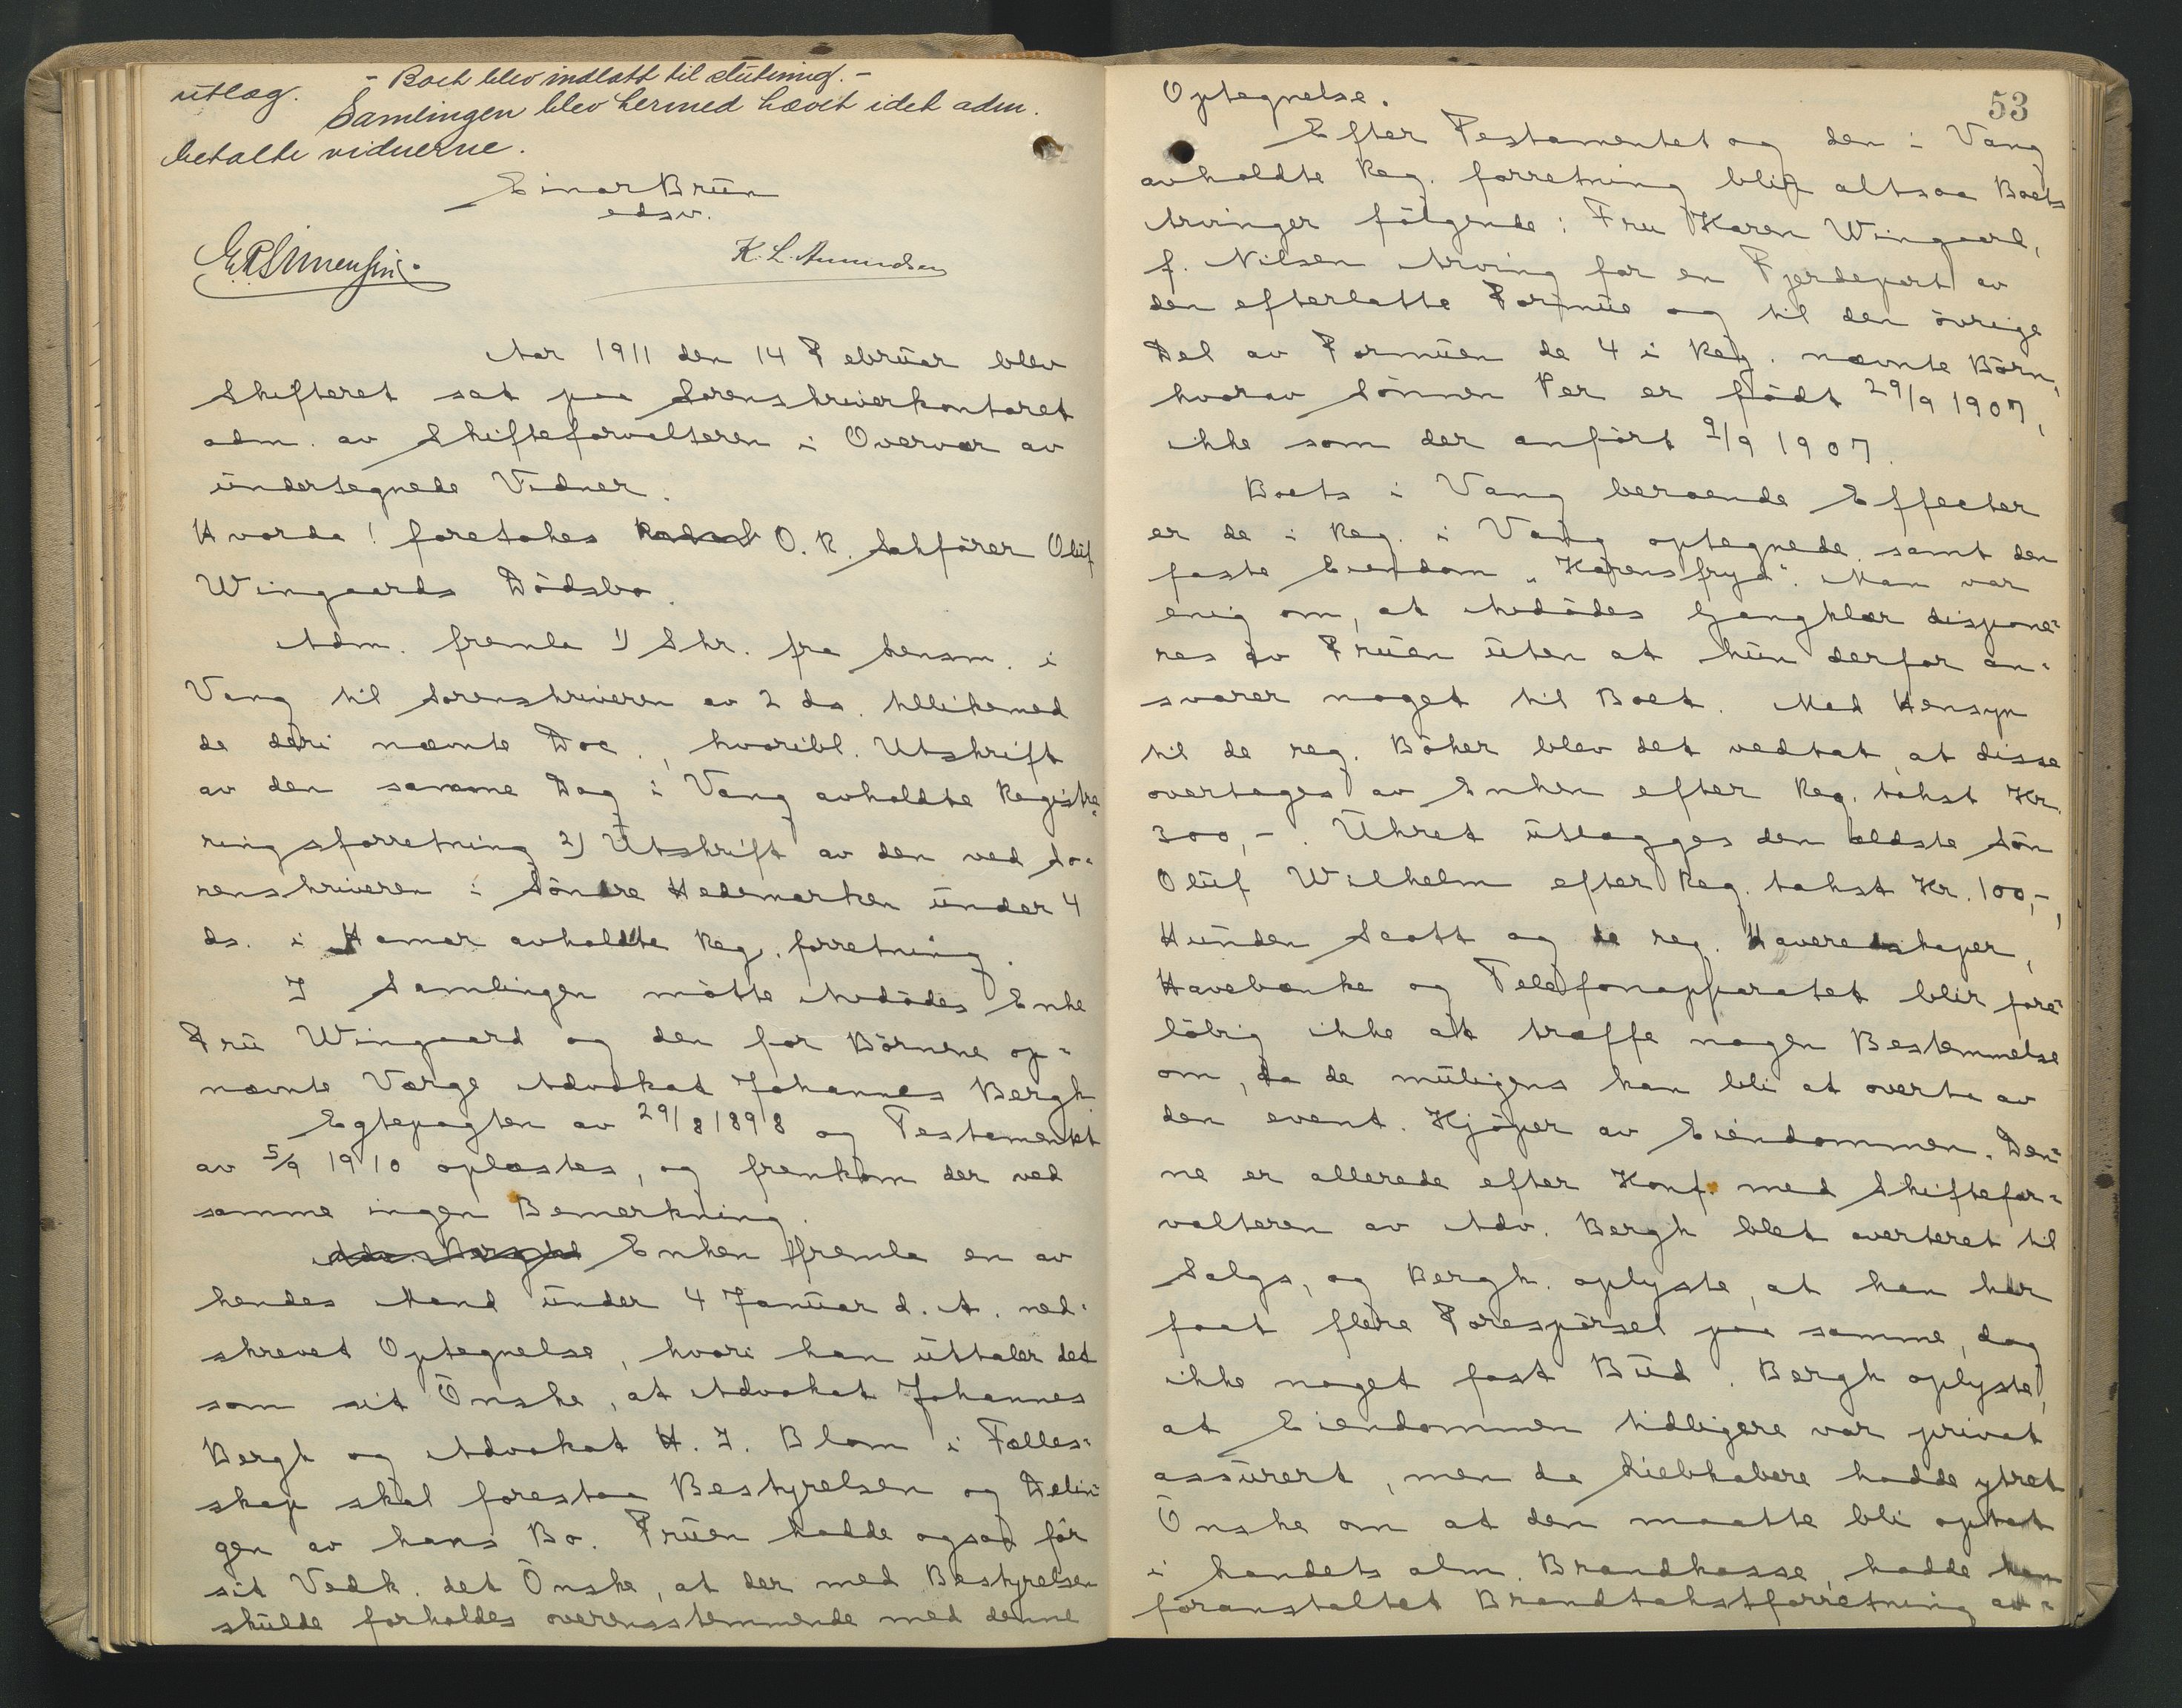 utlæg. - Boet blev indlatt til slutning. -
Samlingen blev hermed hævet idet adm.
betalte vidnerne.
Einar Bruun
edsv.
E. R. Simensen. K. L. Amundsen
Aar 1911 den 14 Februar blev
Skifteret sat paa Sorenskriverkontoret
adm. av Skifteforvalteren i Overvær av
undertegnede Vidner.
Hvorda! foretokes O. R. Sakfører Oluf
Wingaards Dødsbo.
Adm. fremla 1) Skr. fra Lensm. i
Vang til Sorenskriveren av 2 ds. tillikemed
de deri nævnte Doc., hvoribl. Utskrift
av den samme Dag i Vang avholdte Registre-
ringsforretning 2) Utskrift av den ved So-
renskriveren i Søndre Hedemarken under 4
ds. i Hamar avholdte Reg. forretning.
I Samlingen møtte Avdødes Enke
Fru Wingaard og den for Børnene op-
nævnte Værge Advokat Johannes Bergh.
Egtepagten av 29/8 1898 og Testamentet
av 5/9 1910 oplæstes, og fremkom der ved
samme ingen Bemerkning.
Adv. Bergh Enken fremla en av
hendes Mand under 4 Januar d. A. ned-
skrevet Optegnelse, hvori han uttaler det
som sit Ønske, at Advokat Johannes
Bergh og Advokat H. J. Blom i Fælles-
skap skal forestaa Bestyrelsen og Delin-
gen av hans Bo. Fruen hadde ogsaa for
sit Vedk. det Ønske, at der med Bestyrelsen
skulde forholdes overensstemmende med denne
53
Optegnelse.
Efter Testamentet og den i Vang
avholdte Reg. forretning blir altsaa Boets
Arvinger følgende: Fru Karen Wingaard,
f. Nilsen Arving for en Fjerdepart av
den efterlatte Formue og til den øvrige
Del av Formuen de 4 i Reg. nævnte Børn,
hvorav Sønnen Per er født 29/9 1907,
ikke som der anført 9/9 1907.
Boets i Vang beroende Effecter
er de i Reg. i Vang optegnede samt den
faste Eiendom "Karensfryd". Man var
enig om, at Avdødes Gangklær dispone-
res av Fruen uten at hun derfor an-
svarer noget til Boet. Med Hensyn
til de reg. Bøker blev det vedtat, at disse
overtages av Enken efter Reg. takst Kr.
300,-. Uhret utlægges den ældste Søn
Oluf Wilhelm efter Reg. takst Kr. 100,-,
Hunden Scott og de reg. Haveredskaper,
Havebænke og Telefonapparatet blir fore-
løbig ikke at træffe nogen Bestemmelse
om, da de muligens kan bli at overta av
den event. Kjøper av Eiendommen. Den-
ne er allerede efter Konf. med Skiftefor-
valteren av Adv. Bergh blet averteret til
Salgs, og Bergh. oplyste, at han har
faat flere Forespørsel paa samme, dog
ikke noget fast Bud. Bergh oplyste,
at Eiendommen tidligere var privat
assurert, men da Liebhabere hadde ytret
Ønske om at den maatte bli optat
i Landets alm. Brandkasse, hadde han
foranstaltet Brandtakstforretning av-